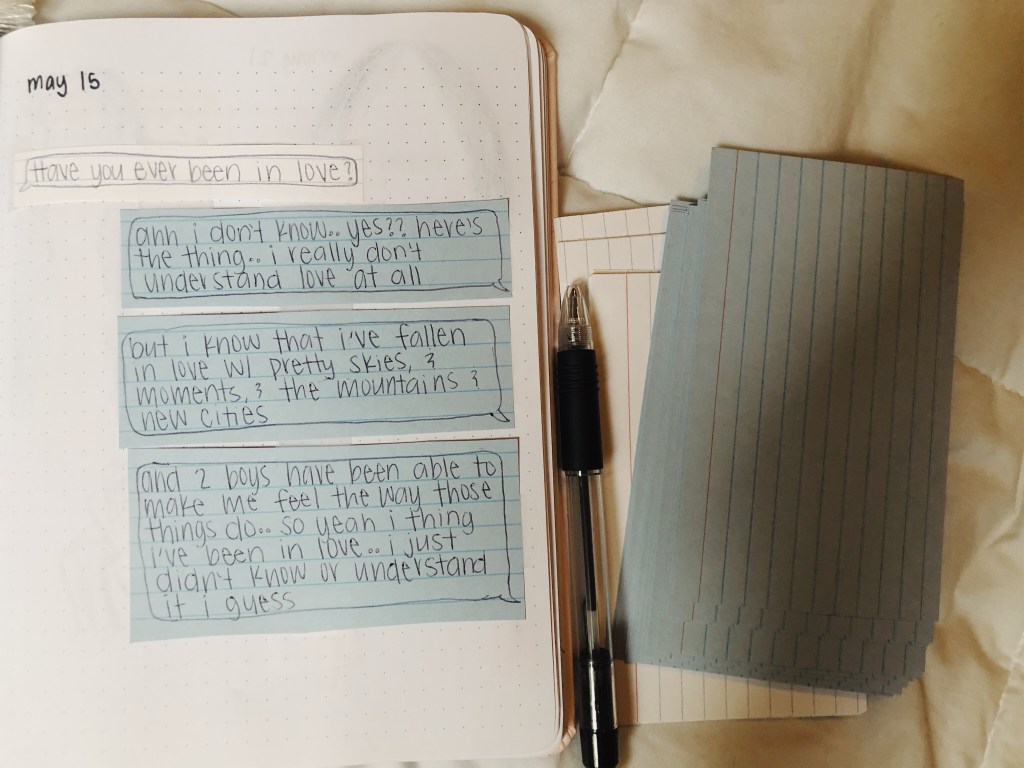 may 15
Have you ever been in love?
ahh i don't know.. yes?? here's
the thing.. i really don't
understand love at all
but i know that i've fallen
in love w/ pretty skies, &
moments, & the mountains &
new cities
and 2 boys have been able to
make me feel the way those
things do.. so yeah i thing
i've been in love.. i just
didn't know or understand
it i guess